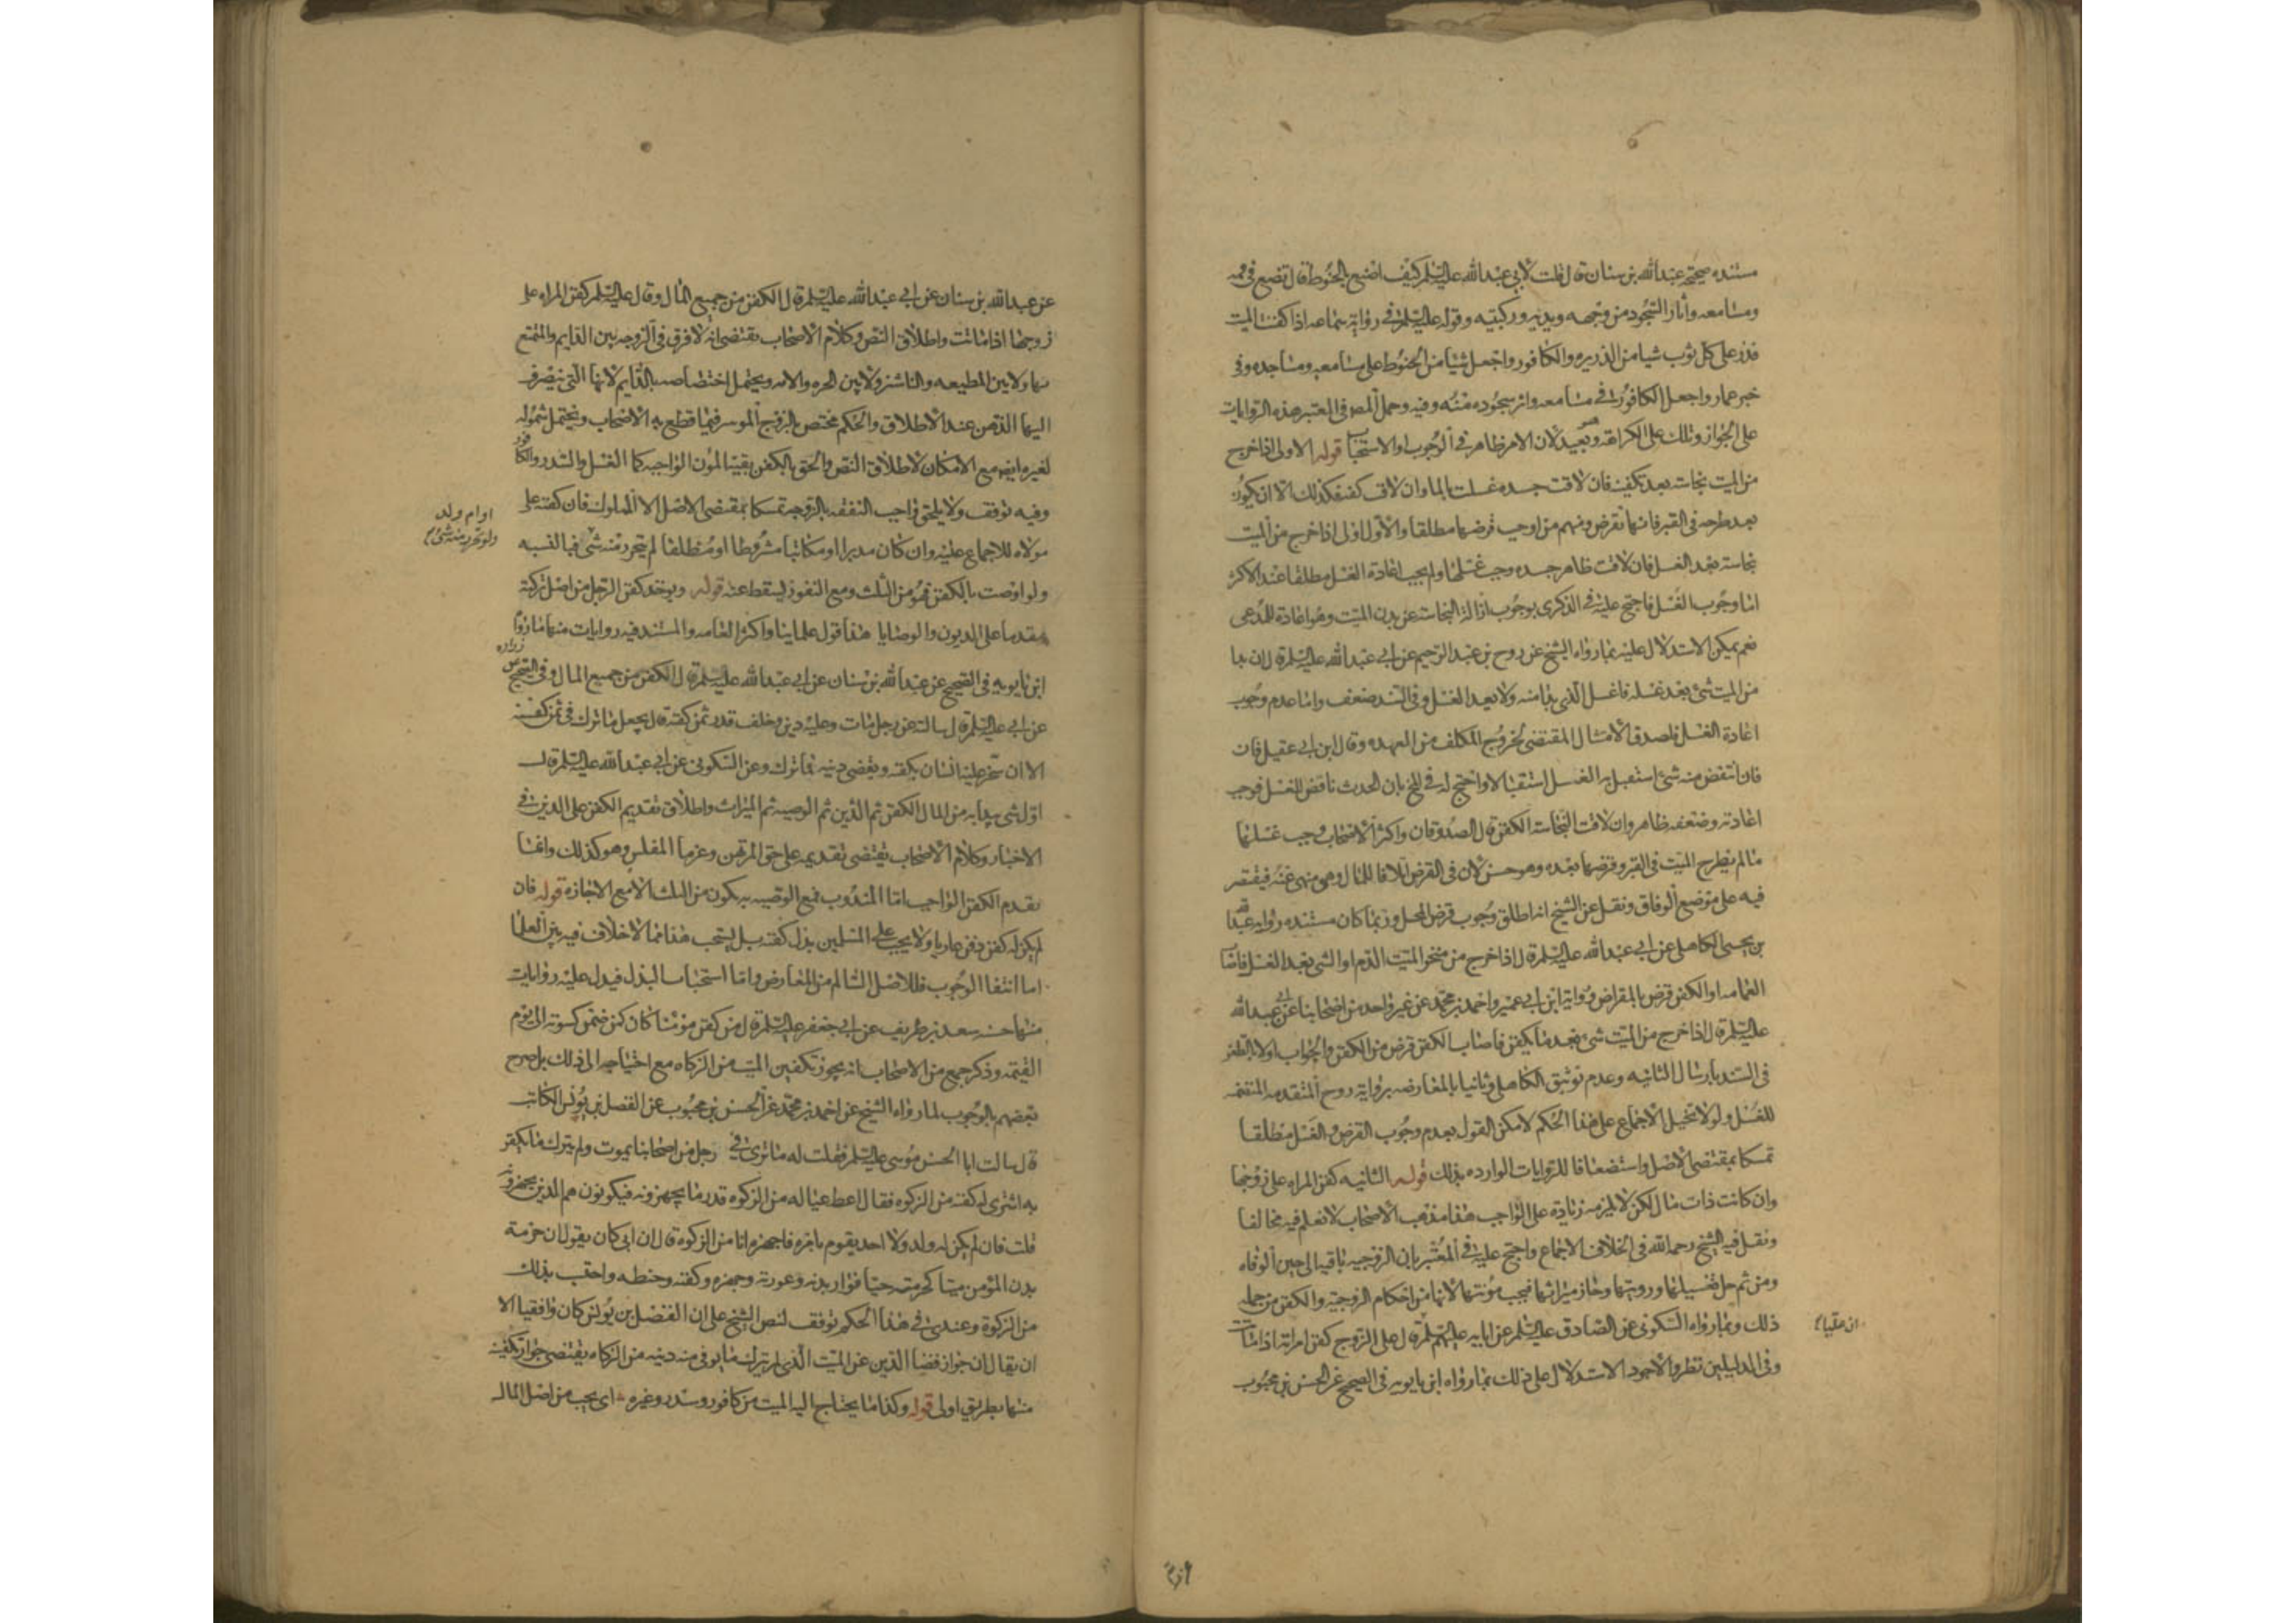 مستنده صحيحه عبدالله بن سنان قال قلت لأبي عبدالله عليه السلم كيف اصنع بالحنوط قال تضع في فمه
ومسامعه وآثار السجود من وجهه ويديه وركبتيه وقوله عليه السلم في رواية سماعه اذا كفنت الميت
فذر على كل ثوب شيا من الذريره والكافور واجعل شيا من الحنوط على مسامعه ومساجده وفي
خبر عمار واجعل الكافور في مسامعه واثر سجوده منه وفيه وحمل المص في المعتبر هذه الروايات
على الجواز وتلك على الكراهة وهو بعيد لان الامر ظاهر في الوجوب او الاستحباب قوله الاولى اذا خرج
من الميت نجاسة بعد تكفينه فان لاقت جسده غسلت بالماء وان لاقت كفنه فكذلك الا ان يكون
بعد طرحه في القبر فانها تقرض ومنهم من اوجب قرضها مطلقا والاول اولى اذا خرج من الميت
نجاسة بعد الغسل فان لاقت ظاهر جسده وجب غسلها ولم يجب اعادة الغسل مطلقا عند الاكثر
اما وجوب الغسل فاحتج عليه في الذكرى بوجوب ازالة النجاسة عن بدن الميت وهو اعادة للمدعى
نعم يمكن الاستدلال عليه بما رواه الشيخ عن روح بن عبد الرحيم عن ابي عبدالله عليه السلم قال ان بدا
من الميت شئ بعد غسله فاغسل الذي بدا منه ولا تعيد الغسل وفي السند ضعف واما عدم وجوب
اعادة الغسل فلصدق الامتثال المقتضى لخروج المكلف من العهده وقال ابن ابي عقيل فان
فان انتقض منه شئ استقبل به الغسل استقبالا واحتج له في المخ بان الحدث ناقض للغسل فوجب
اعادته وضعفه ظاهر وان لاقت النجاسة الكفن قال الصدوقان واكثر الاصحاب وجب غسلها
مالم يطرح الميت في القبر وقرضها بعده وهو حسن لان في القرض اتلافا للمال وهو منهي عنه فيقتصر
فيه على موضع الوفاق ونقل عن الشيخ انه اطلق وجوب قرض المحل وربما كان مستنده رواية عبدالله
بن يحيى الكاهلى عن ابي عبدالله عليه السلم قال اذا خرج من منخر الميت الدم او الشى بعد الغسل فاصاب
العمامه او الكفن قرض بالمقراض ورواية ابن ابي عمير واحمد بن محمد عن غير واحد من اصحابنا عن ابي عبدالله
عليه السلم قال اذا خرج من الميت شئ بعد ما يكفن فاصاب الكفن قرض من الكفن والجواب اولا بالطعن
في السند بارسال الثانيه وعدم توثيق الكاهلى وثانيا بالمعارضه برواية روح المتقدمه المتضمنه
للغسل ولولا تخيل الاجماع على هذا الحكم لامكن القول بعدم وجوب القرض والغسل مطلقا
تمسكا بمقتضى الاصل واستضعافا للروايات الوارده بذلك قوله الثانيه كفن المراه على زوجها
وان كانت ذات مال لكن لا يلزمه زيادة على الواجب هذا مذهب الاصحاب لا نعلم فيه مخالفا
ونقل فيه الشيخ رحمه الله في الخلاف الاجماع واحتج عليه في المعتبر بان الزوجيه باقيه الى حين الوفاه
ومن ثم حل تغسيلها ورويتها وجاز ميراثها فيجب مؤنتها لانها من احكام الزوجيه والكفن من جملة
ذلك وبما رواه السكونى عن الصادق عليه السلم عن ابايه عليهم السلم قال على الزوج كفن امراته اذا ماتت
وفي الدليلين نظر والاجود الاستدلال على ذلك بما رواه ابن بابويه في الصحيح عن الحسن بن محبوب
عن عبدالله بن سنان عن ابي عبدالله عليه السلم قال الكفن من جميع المال وقال عليه السلم كفن المراه على
زوجها اذا ماتت واطلاق النص وكلام الاصحاب يقتضى انه لا فرق في الزوجه بين الدايم والمتمتع
بها ولا بين المطيعه والناشز ولا بين الحره والامه ويحتمل اختصاصه بالدايم لانها التى ينصرف
اليها الذهن عند الاطلاق والحكم مختص بالزوج الموسر فيما قطع به الاصحاب ويحتمل شموله
لغيره ايضا مع الامكان لاطلاق النص والحق بالكفن بقية المؤن الواجبه كما الغسل والسدر والكافور
وفيه توقف ولا يلحق واجب النفقه بالزوجه تمسكا بمقتضى الاصل الا المملوك فان كفنه على
مولاه للاجماع عليه وان كان مدبرا او مكاتبا مشروطا او مطلقا لم يتحرر منه شى فبالنسبه
او ام ولد
ولو تحرر منه شئ
ولو اوصت بالكفن فهو من الثلث ومع النفوذ يسقط عنه قوله ويوخذ كفن الرجل من اصل تركته
مقدما على الديون والوصايا هذا قول علماينا واكثر العامه والمستند فيه روايات منها ما رواه
ابن بابويه في الصحيح عن عبدالله بن سنان عن ابي عبدالله عليه السلم قال الكفن من جميع المال وفي الصحيح عن زراره
عن ابي عليه السلم قال سالته عن رجل مات وعليه دين وخلف قدر ثمن كفنه قال يجعل ما ترك في ثمن كفنه
الا ان يتجر عليه انسان بكفنه ويقضى دينه بما ترك وعن السكونى عن ابي عبدالله عليه السلم قال
اول شى يبدأ به من المال الكفن ثم الدين ثم الوصيه ثم الميراث واطلاق تقديم الكفن على الدين في
الاخبار وكلام الاصحاب يقتضى تقديمه على حق المرتهن وغرماء المفلس وهو كذلك وانما
يقدم الكفن الواجب اما المندوب فمع الوصيه به يكون من الثلث الا مع الاجازه قوله فان
لم يكن له كفن دفن عاريا ولا يجب على المسلمين بذل كفنه بل يستحب هذا مما لا خلاف فيه بين العلما
اما انتفا الوجوب فللاصل السالم من المعارض واما استحباب البذل فيدل عليه روايات
منها حسنه سعد بن طريف عن ابي جعفر عليه السلم قال من كفن مومنا كان كمن ضمن كسوته الى يوم
القيمه وذكر جمع من الاصحاب انه يجوز تكفين الميت من الزكاه مع احتياجه الى ذلك بل صرح
بعضهم بالوجوب لما رواه الشيخ عن احمد بن محمد عن الحسن بن محبوب عن الفضل بن يونس الكاتب
قال سالت ابا الحسن موسى عليه السلم فقلت له ما ترى في رجل من اصحابنا يموت ولم يترك ما يكفن
به اشترى له كفنه من الزكوه فقال اعط عياله من الزكوه قدر ما يجهزونه فيكونون هم الذين يجهزونه
قلت فان لم يكن له ولد ولا احد يقوم بامره فاجهزه انا من الزكوة قال ان ابي كان يقول ان حرمة
بدن المؤمن ميتا كحرمته حيا فوار بدنه وعورته وجهزه وكفنه وحنطه واحتسب بذلك
من الزكوة وعندى في هذا الحكم توقف لنص الشيخ على ان الفضل بن يونس كان واقفيا الا
ان يقال ان جواز قضا الدين عن الميت الذى لم يترك ما يوفى منه دينه من الزكاه يقتضى جواز تكفينه
منها بطريق اولى قوله وكذا ما يحتاج اليه الميت من كافور وسدر وغيره اى يجب من اصل المال